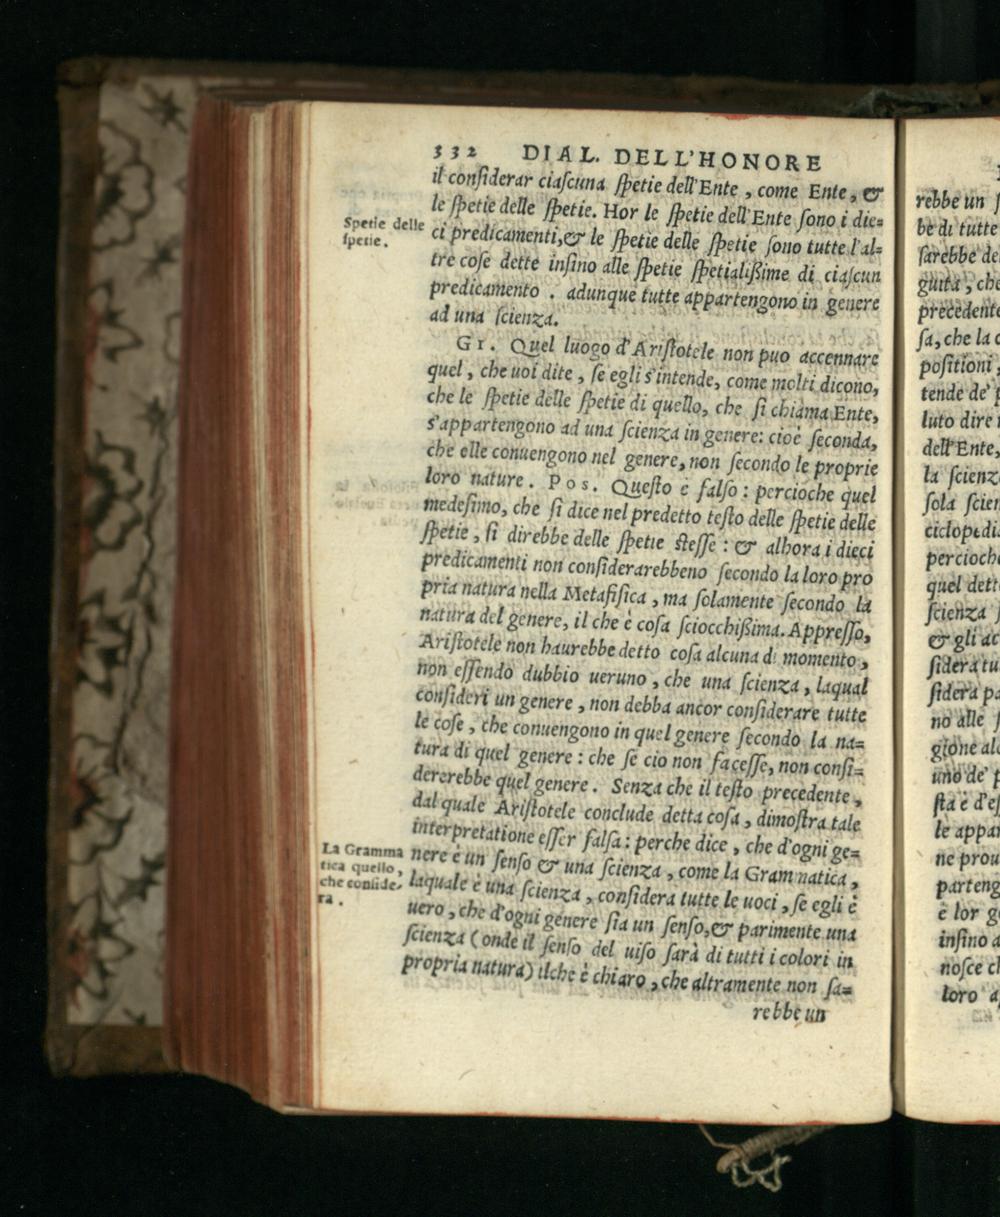 332 DIAL. DELL'HONORE
il considerar ciascuna spetie dell'Ente, come Ente, &
le spetie delle spetie. Hor le spetie dell'Ente sono i die=
Spetie delle
spetie.
ci predicamenti,& le spetie delle spetie sono tutte l'al=
tre cose dette insino alle spetie spetialißime di ciascun
predicamento. adunque tutte appartengono in genere
ad una scienza.
GI. Quel luogo d'Aristotele non puo accennare
quel, che uoi dite, se egli s'intende, come molti dicono,
che le spetie delle spetie di quello, che si chiama Ente,
s'appartengono ad una scienza in genere: cioè seconda,
che elle conuengono nel genere, non secondo le proprie
loro nature. POS. Questo è falso: percioche quel
medesimo, che si dice nel predetto testo delle spetie delle
spetie, si direbbe delle spetie stesse: & alhora i dieci
predicamenti non considerarebbeno secondo la loro pro
pria natura nella Metafisica, ma solamente secondo la
natura del genere, il che è cosa sciocchißima. Appresso,
Aristotele non haurebbe detto cosa alcuna di momento,
non essendo dubbio ueruno, che una scienza, laqual
consideri un genere, non debba ancor considerare tutte
le cose, che conuengono in quel genere secondo la na=
tura di quel genere: che se cio non facesse, non consi=
dererebbe quel genere. Senza che il testo precedente,
dal quale Aristotele conclude detta cosa, dimostra tale
interpretatione esser falsa: perche dice, che d'ogni ge=
La Gramma
tica quello,
che conside-
ra.
nere è un senso & una scienza, come la Grammatica,
laquale è una scienza, considera tutte le uoci, se egli è
uero, che d'ogni genere sia un senso,& parimente una
scienza (onde il senso del uiso sarà di tutti i colori in
propria natura) ilche è chiaro, che altramente non sa=
rebbe un
rebbe un
be di tutte
sarebbe de
guita, che
precedente
sa, che la c
positioni,
tende de' p
luto dire
dell'Ente,
la scienz
sola scien
ciclopedi
percioche
quel dett
scienza
& gli ac
sidera tu
sidera pa
no alle
gione al
uno de' p
sta è d'es
le appar
ne prou
parteng
è lor g
insino a
nosce ch
loro a